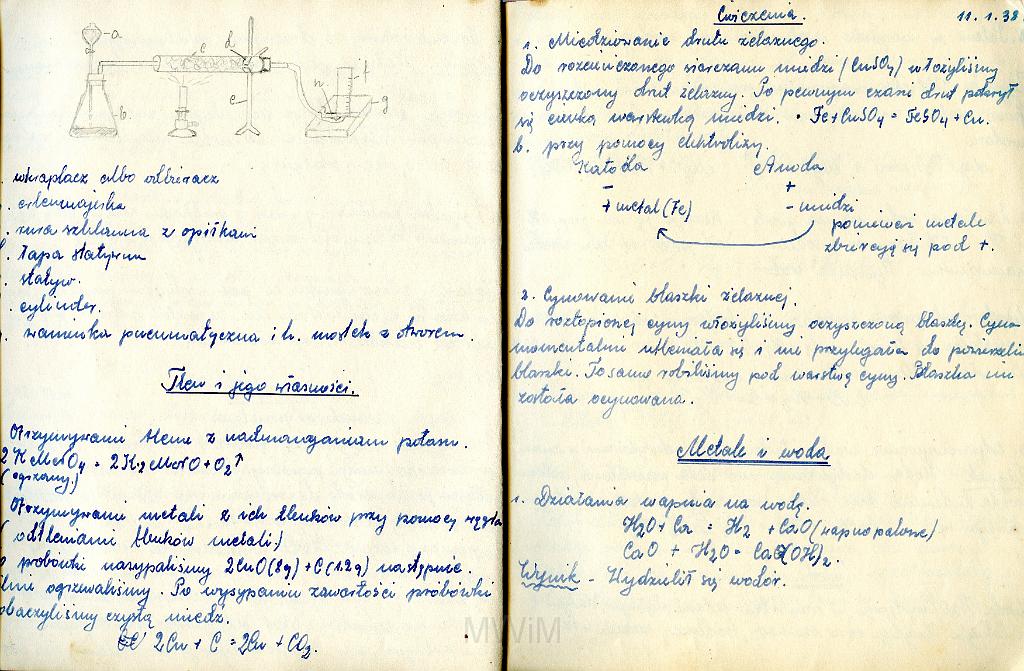 a
c
d
b.
e
n
f
g
. wkraplacz albo odbieracz
. erlenmajerka
. rura szklanna z opiłkami
. łapa statywu
. statyw.
. cylinder.
. wanienka pneumatyczna i h. mostek z otworem.
Tlen i jego własności.
Otrzymywanie tlenu z nadmanganianu potasu.
2KMnO4 = 2K2MnO + O2↑
(ogrzany)
Otrzymywanie metali z ich tlenków przy pomocy węgla
(odtlenianie tlenków metali.)
probówki nasypaliśmy 2CuO(8g) + C(1.2g) następnie
ogrzewaliśmy. Po wysypaniu zawartości probówki
obaczyliśmy czystą miedź.
2Cu + C = 2Cu + CO2.
MWiM
Ćwiczenia. 11.1.38
1. Miedziowanie drutu żelaznego.
Do rozcieńczonego siarczanu miedzi (CuSO4) włożyliśmy
oczyszczony drut żelazny. Po pewnym czasie drut pokrył
się cienką warstwką miedzi. • Fe + CuSO4 = FeSO4 + Cu.
b. przy pomocy elektrolizy.
Katoda Anoda
− +
+ metal (Fe) − miedzi
ponieważ metale
zbierają się pod +.
2. Cynowanie blaszki żelaznej.
Do roztopionej cyny włożyliśmy oczyszczoną blaszkę. Cyna
momentalnie utleniała się i nie przylegała do powierzchni
blaszki. To samo robiliśmy pod warstwą cyny. Blaszka nie
została ocynowana.
Metale i woda
1. Działania wapnia na wodę.
H2O + Ca = H2 + CaO (wapno palone)
CaO + H2O = Ca(OH)2.
Wynik - Wydzielił się wodór.